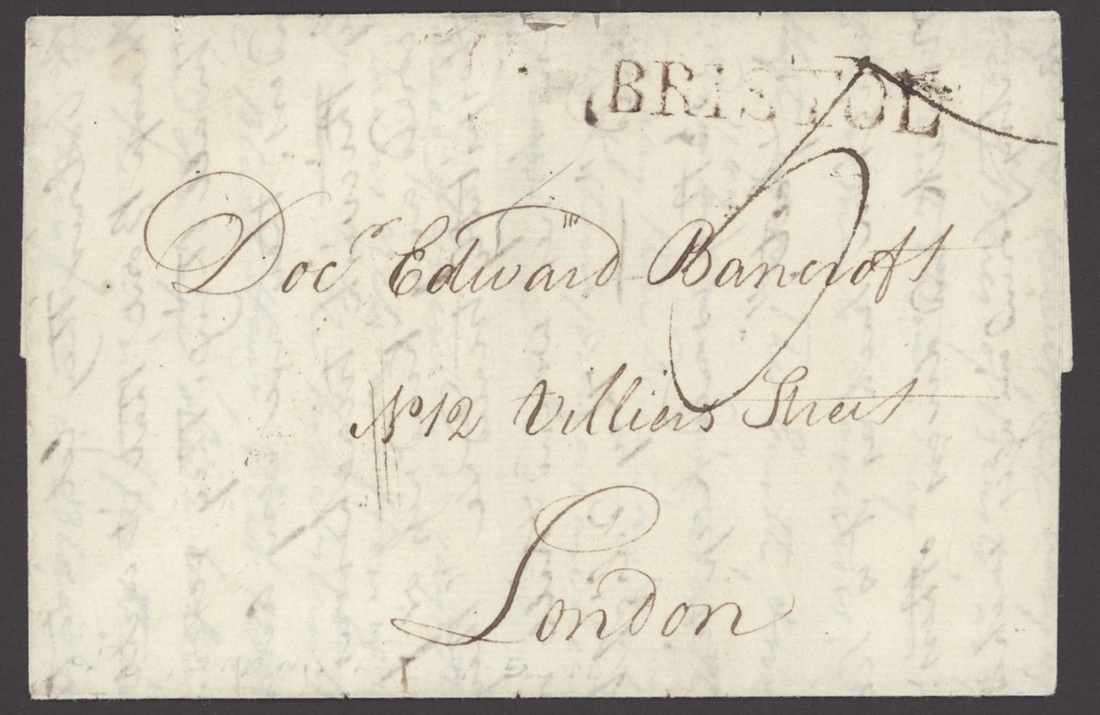 BRISTOL
Docr Edward Bancroft
No 12 Villiers Street
London